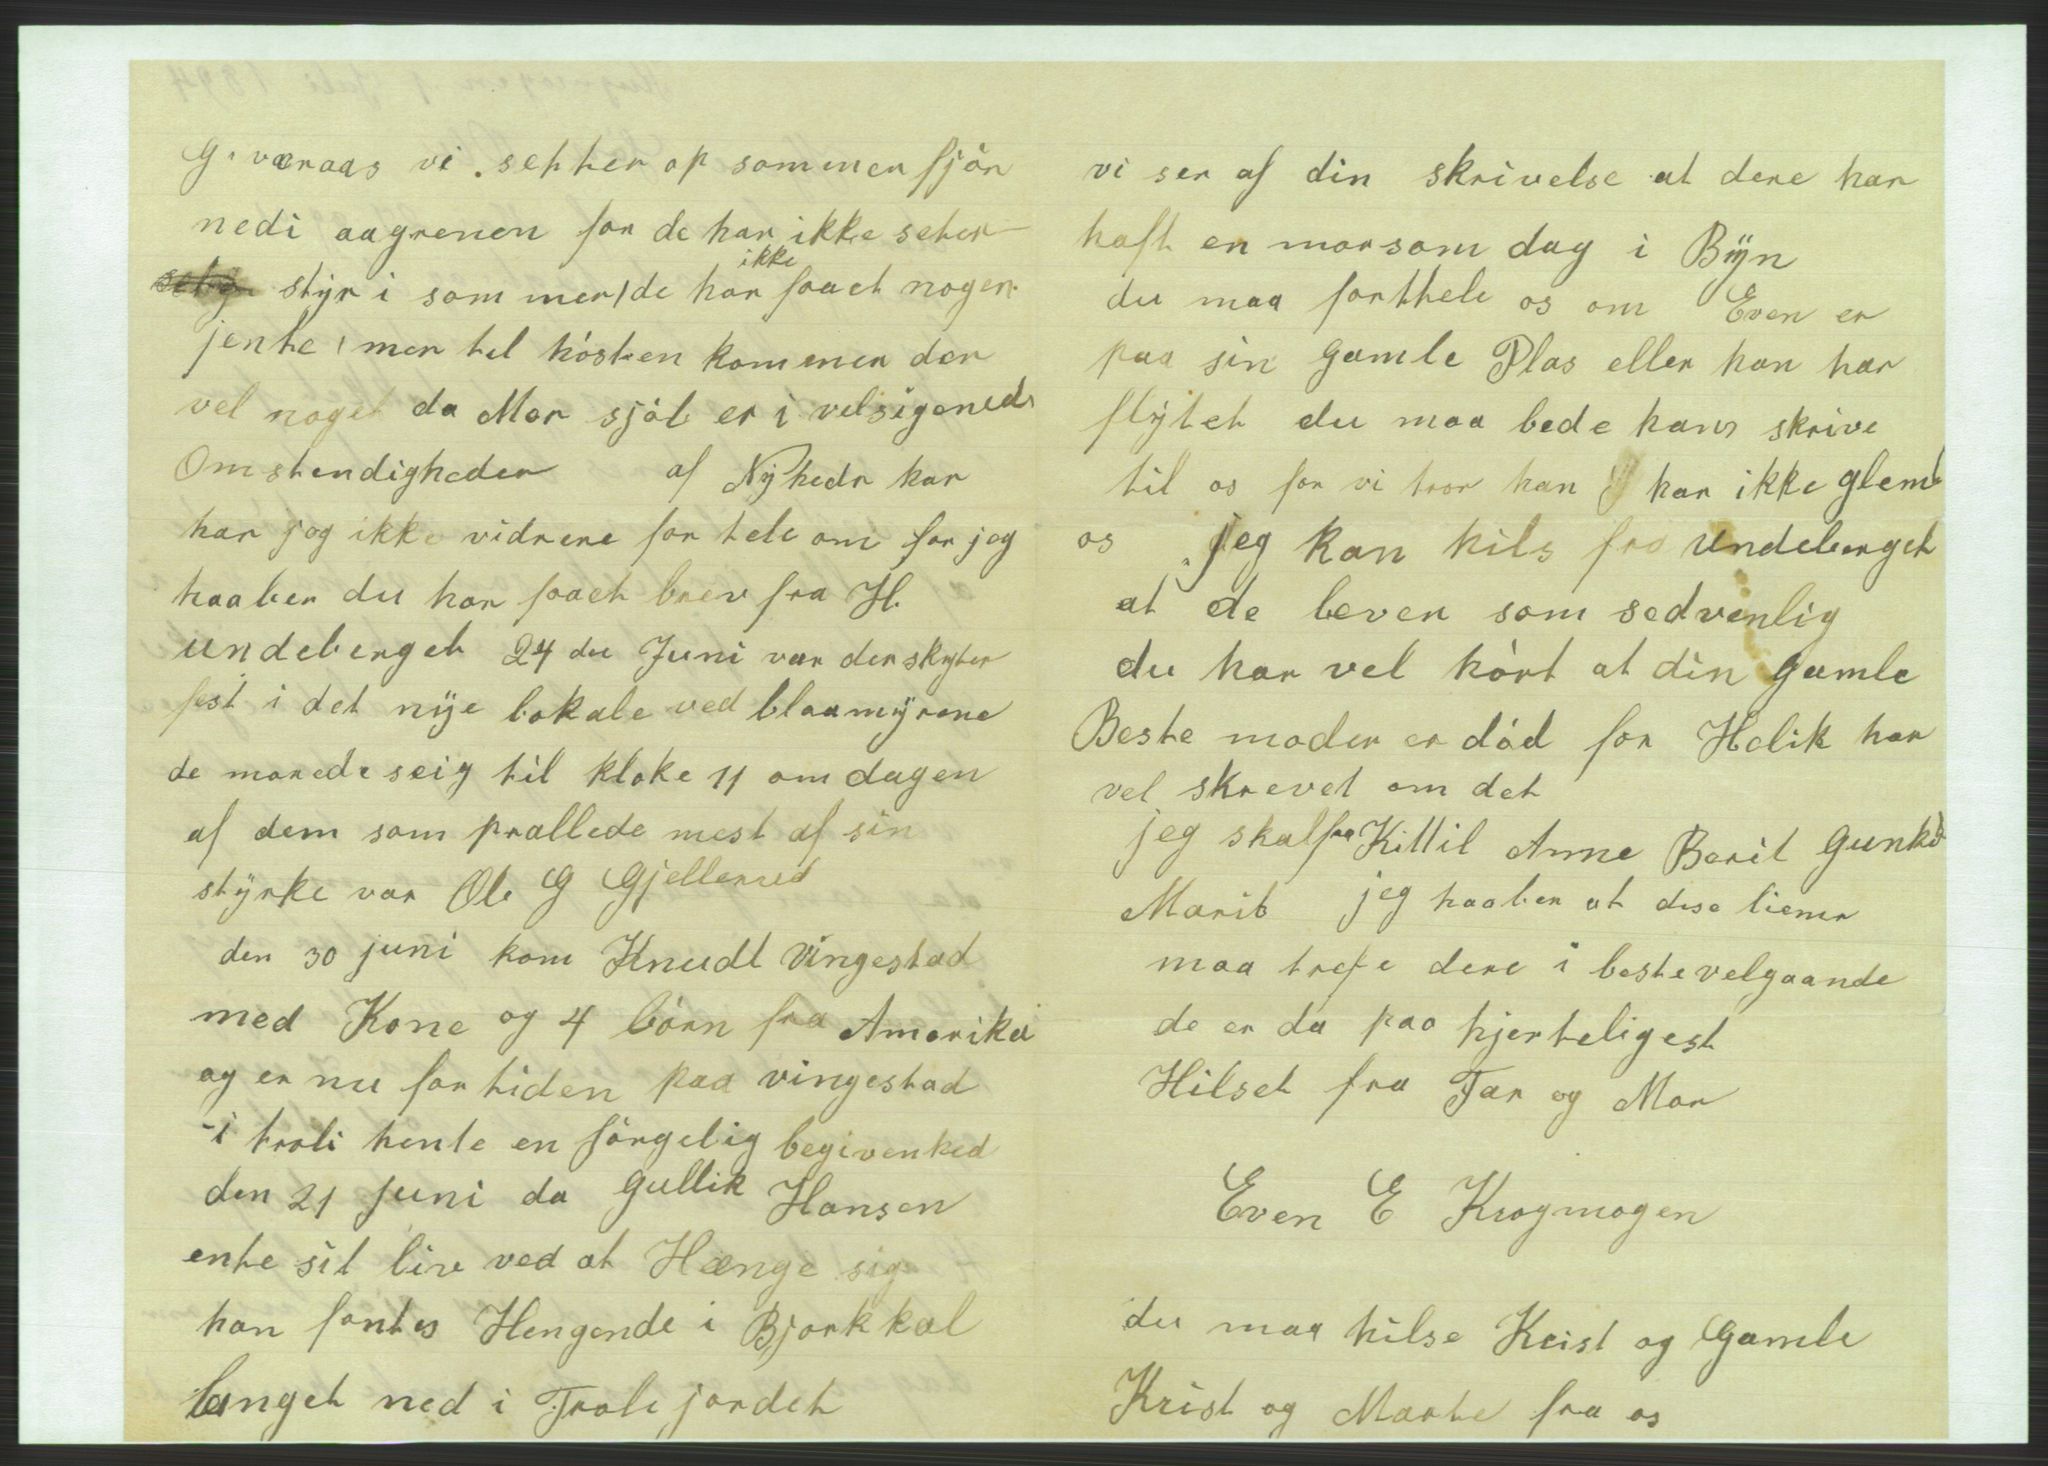 G. væraas vi setter op sommer fjör
nedi aagrenen for de har ikke seter
styr i sommer de har ikke faaet nogen
jente, men tel hösten kommer der
vel noget da Mor sjöl er i velsigenede
Omstendigheder af Nyhedr kar
har jeg ikke vidrere for tele om for jeg
haaber du har faaet brev fra H.
undeberget 24 du Juni var der skyter
fest i det nye lokale ved blaamyrene
de morede seig til kloke 11 om dagen
af dem som prallede mest af sin
styrke var Ole G Gjellerud
den 30 juni kom Knudt Vingestad
med Kone og 4 börn fra Amerika
og er nu for tiden paa vingestad
i troli hente en sörgelig begivenhed
den 21 Juni da Gullik Hansen
ente sit liv ved at Hænge sig
han fantes Hengende i Bjorkkal
langet ned i Trolijordet
vi ser af din skrivelse at dere har
haft en morsom dag i Byn
du maa forttele os om Even er
paa sin Gamle Plas eller han har
flytet du maa bede ham skrive
til os for vi tror han har ikke glemt
os jeg kan hils fra Undeberget
at de lever som sedvenlig
du har vel hört at din Gamle
Beste moder er död for Helik har
vel skrevet om det
jeg skal fra Kittil Anne Berit Gunhild
Marit jeg haaber at dise liener
maa trefe dere i beste velgaande
de er da paa hjerteligest
Hilset fra Far og Mor
Even E Krogmogen
du maa hilse Krist og Gamle
Krist og Marte fra os